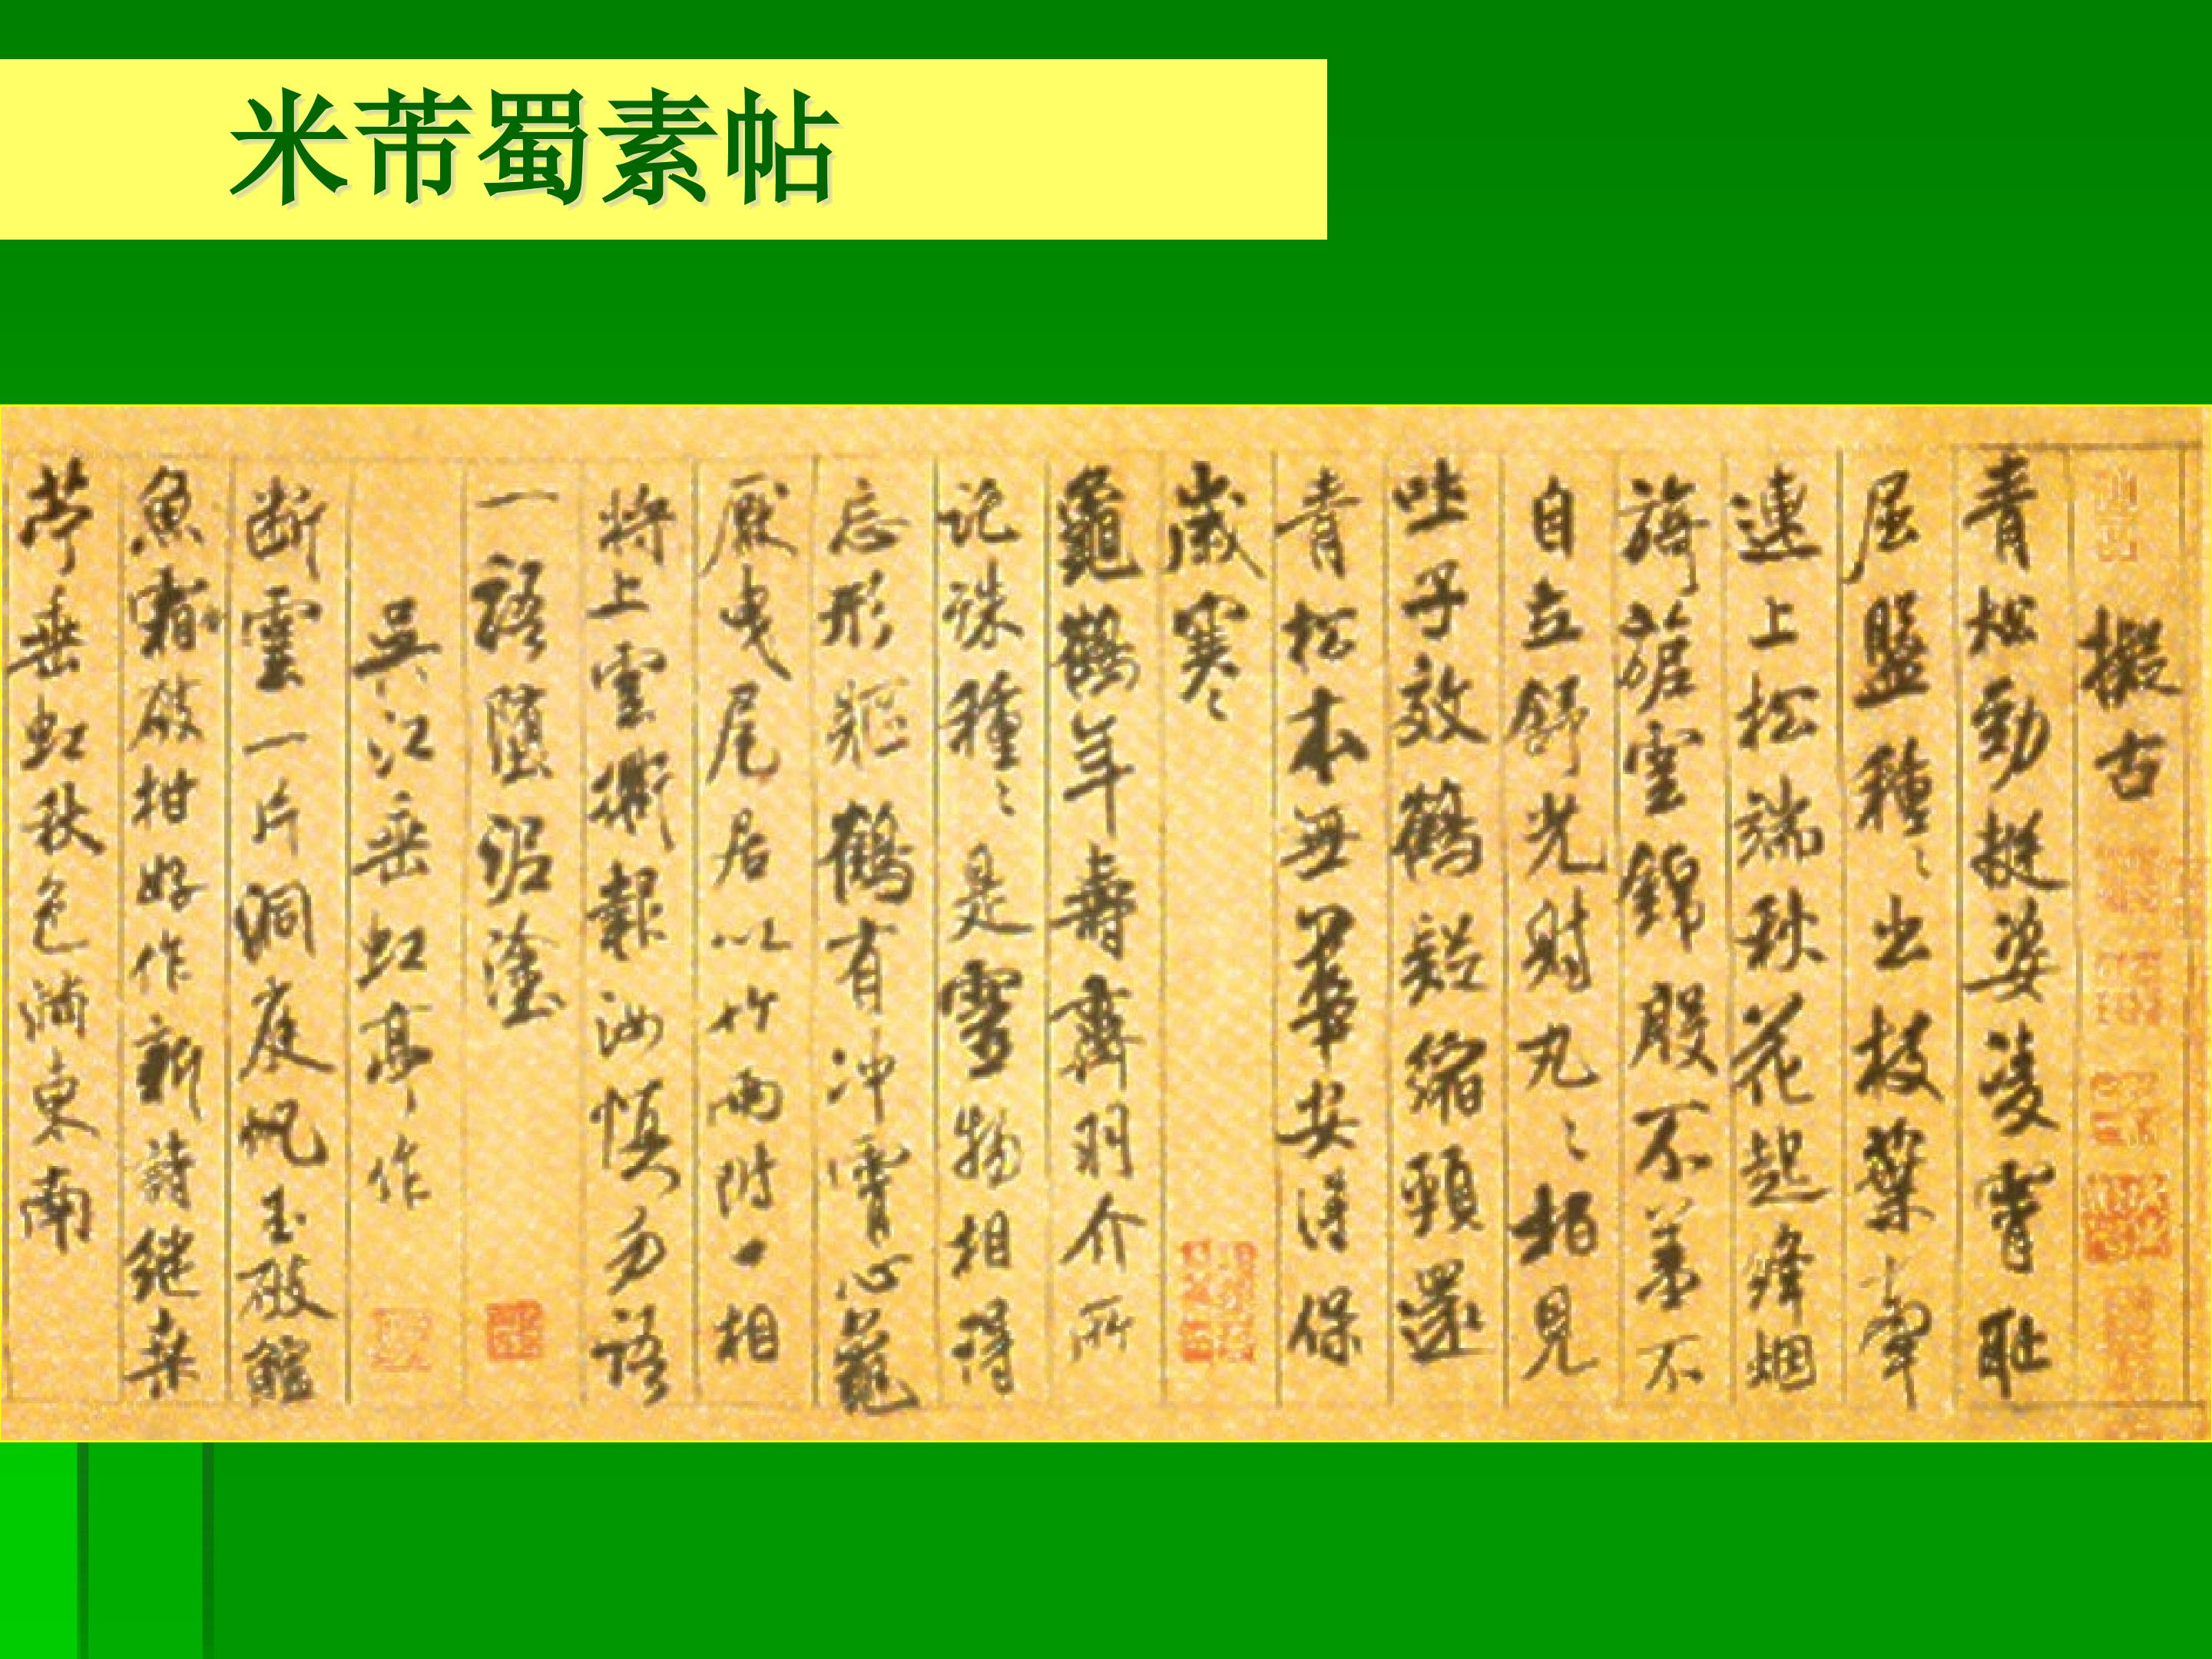 米芾蜀素帖
擬古
青松勁挺姿凌霄耻
屈盤種々出枝葉牽
連上松端秋花起烽烟
旖旎雲錦殷不羞不
自立舒光射丸々栢見
吐子效鶴疑縮頸還
青松本無華安得保
歲寒
龜鶴年壽齊羽介所
記殊種々是靈物相得
忘形軀鶴有冲霄心龜
厭曳尾居以竹兩附口相
將上雲衢報汝慎勿語
一語墮泥塗
吳江垂虹亭作
断雲一片洞庭帆玉破鱸
魚霜破柑好作新詩継桑
苧垂虹秋色滿東南